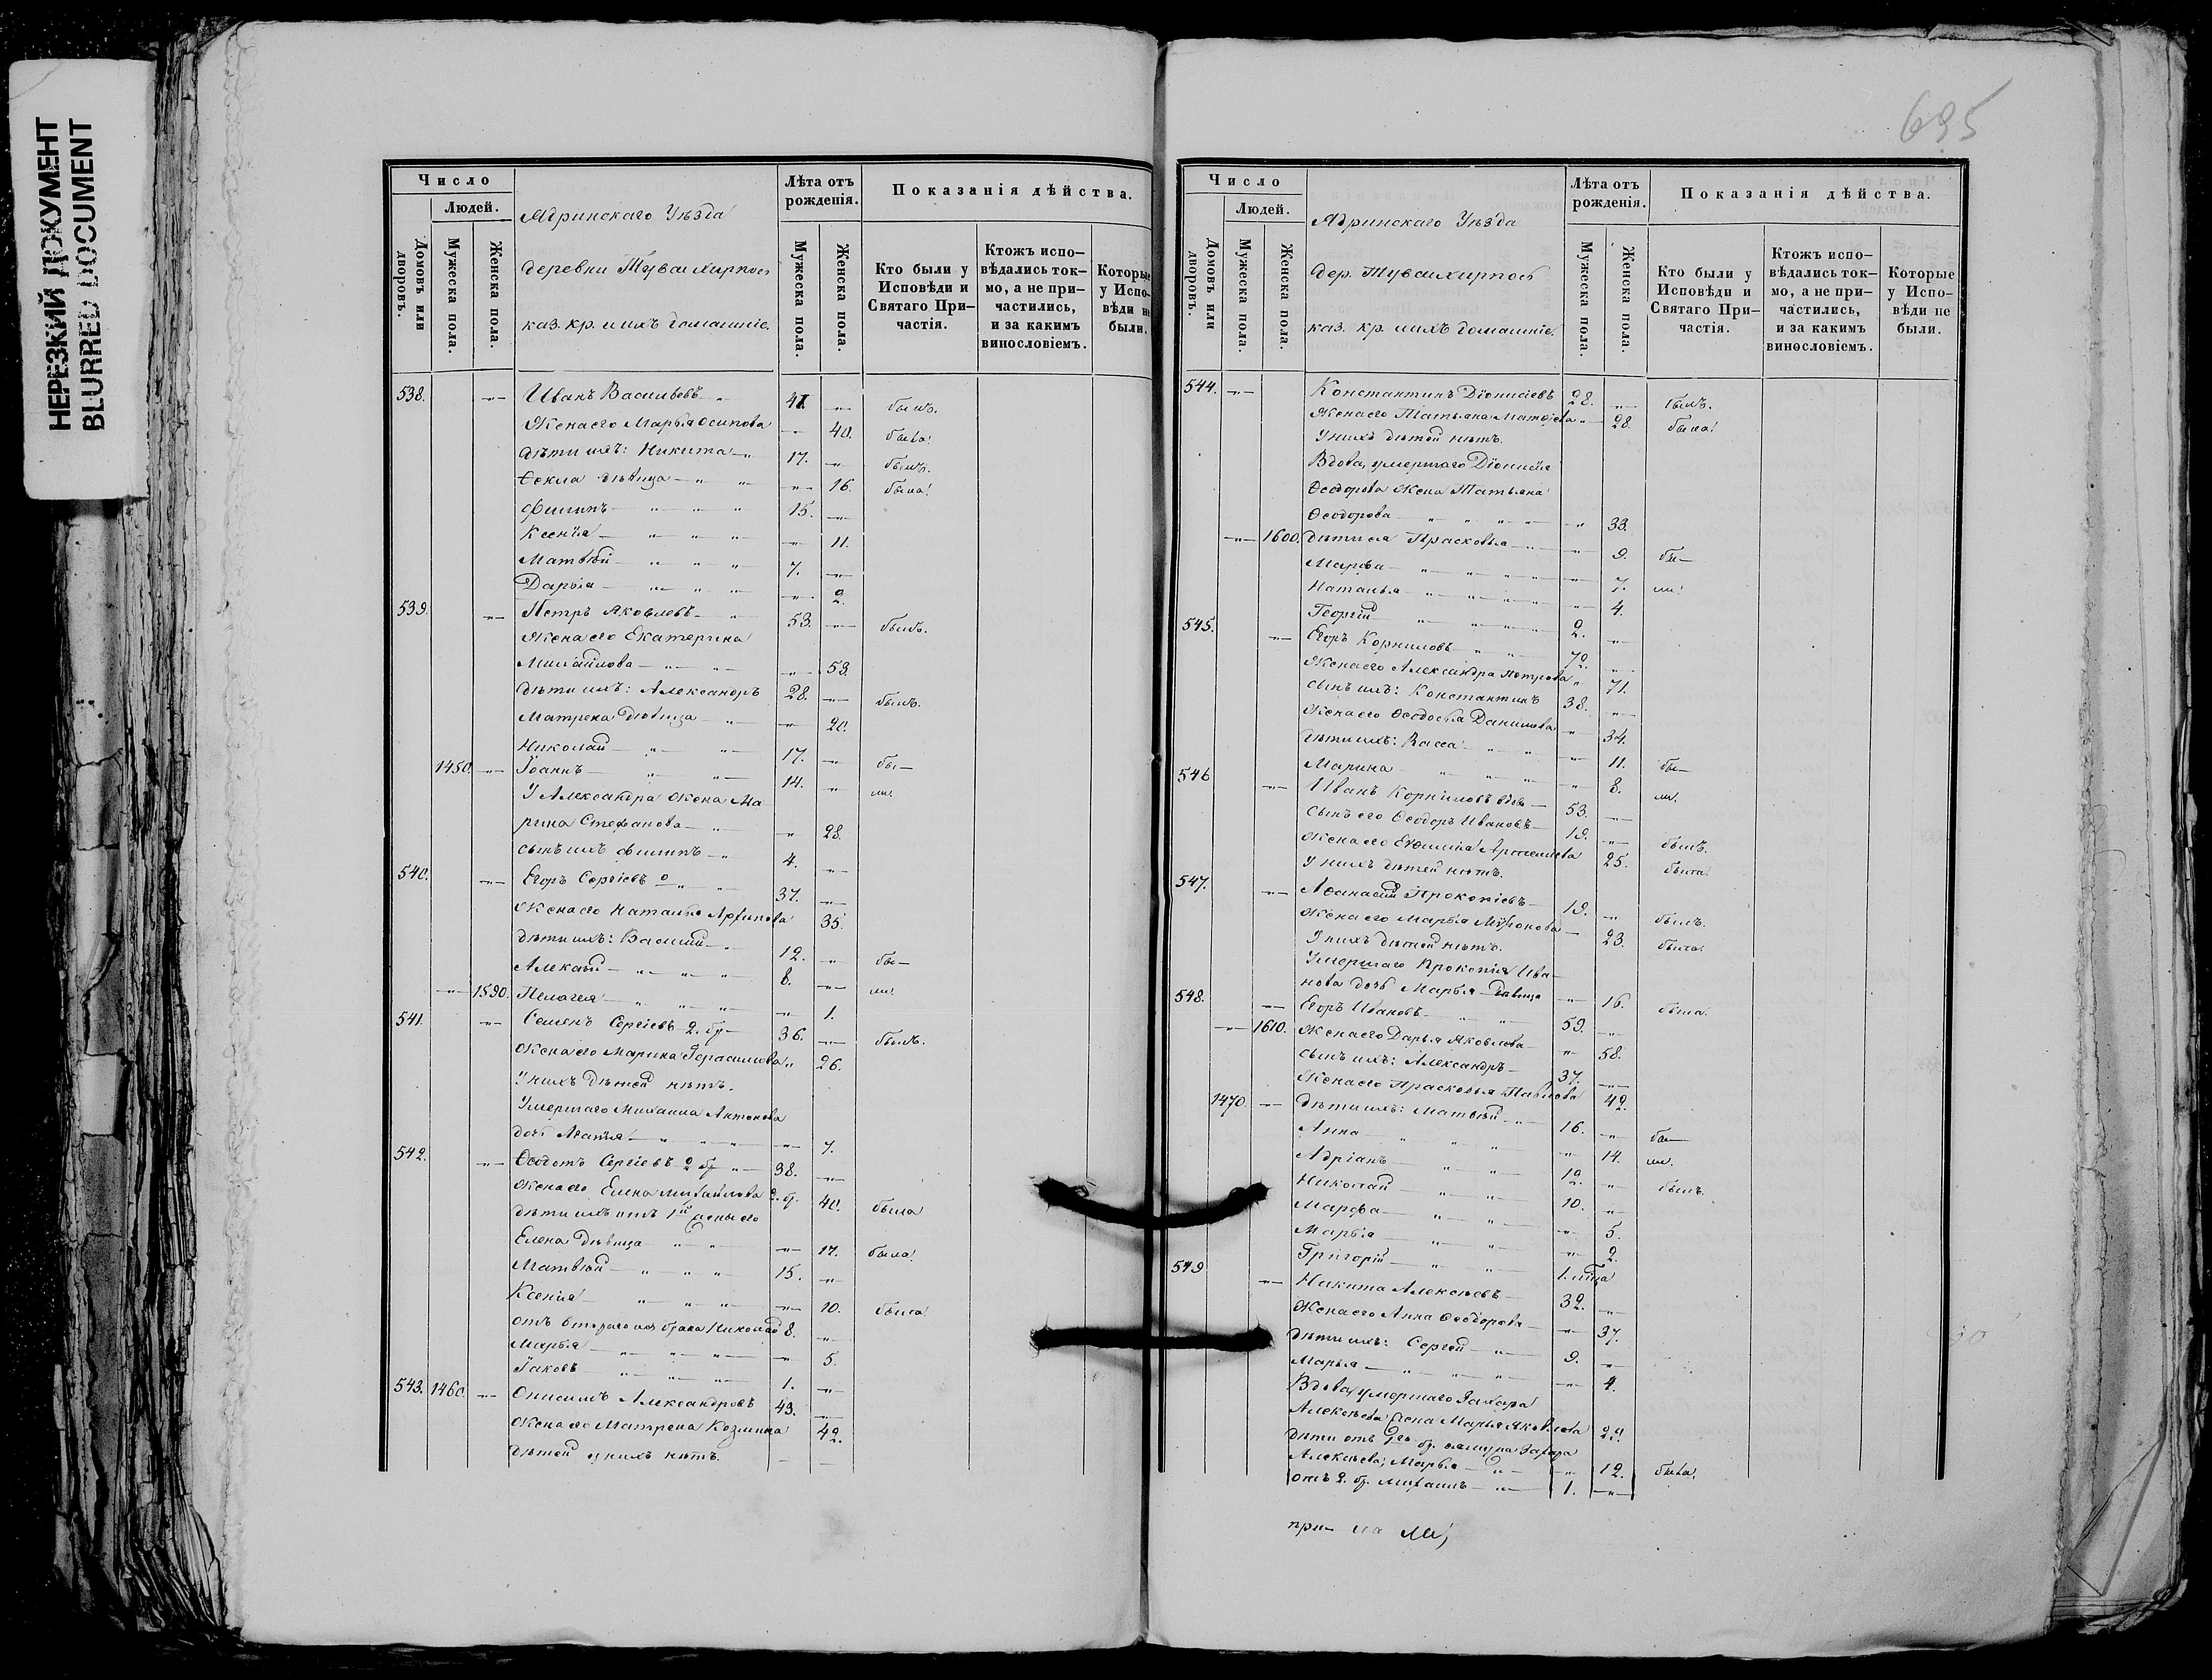 НЕРЕЗКИЙ ДОКУМЕНТ
BLURRED DOCUMENT
695
Число
Людей.
Домовъ или дворовъ.
Мужеска пола.
Женска пола.
Ядринскаго Уѣзда
деревни Тувси Хирпось
каз. кр. и ихъ домашніе.
Лѣта отъ рожденія.
Мужеска пола.
Женска пола.
Показанія дѣйства.
Кто были у Исповѣди и Святаго Причастія.
Ктожъ исповѣдались токмо, а не причастились, и за какимъ винословіемъ.
Которые у Исповѣди не были.
538. Иванъ Васильевъ 41. былъ.
Жена его Марья Осипова 40. была.
дѣти ихъ: Никита 17. былъ.
Ѳекла дѣвица 16. была.
Филипъ 15.
Ксенія 11.
Матвѣй 7.
Дарья 2.
539. Петръ Яковлевъ 53. былъ.
Жена его Екатерина
Михайлова 53.
дѣти ихъ: Александръ 28. былъ.
Матрена дѣвица 20.
Николай 17. бы-
1450. Іоаннъ 14. ли.
У Александра жена Ма
рина Стефанова 28.
сынъ ихъ Филипъ 4.
540. Егоръ Сергіевъ 37.
Жена его Наталья Архипова 35.
дѣти ихъ: Василій 12. бы-
Алексѣй 8. ли.
1590. Пелагея 1.
541. Семенъ Сергіевъ 2. бр 36. былъ.
Жена его Марина Герасимова 26.
У нихъ дѣтей нѣтъ.
Умершаго Михаила Антонова
дочь Агаѳія 7.
542. Ѳедотъ Сергіевъ 2 бр 38.
Жена его Елена Михайлова 2. бр. 40. была
дѣти ихъ отъ 1й жены его
Елена дѣвица 17. была.
Матвѣй 15.
Ксенія 10. была
отъ втораго их брака Николай 8.
Марья 5.
Іаковъ 1.
543. 1460. Онисимъ Александровъ 43.
Жена его Матрена Козмина 42.
дѣтей у нихъ нѣтъ.
Число
Людей.
Домовъ или дворовъ.
Мужеска пола.
Женска пола.
Ядринскаго Уѣзда
дер. Тувсихирпось
каз. кр. и ихъ домашніе.
Лѣта отъ рожденія.
Мужеска пола.
Женска пола.
Показанія дѣйства.
Кто были у Исповѣди и Святаго Причастія.
Ктожъ исповѣдались токмо, а не причастились, и за какимъ винословіемъ.
Которые у Исповѣди не были.
544. Константинъ Діонисіевъ 28. былъ.
Жена его Татьяна Матѳіева 28. была.
У нихъ дѣтей нѣтъ.
Вдова, умершаго Діонисія
Ѳеодорова жена Татьяна
Ѳеодорова 33.
1600. дѣти ея Прасковья 9. бы-
Марфа 7. ли.
Наталья 4.
Георгій 2.
545. Егоръ Корниловъ 72.
Жена его Александра Петрова 71.
сынъ ихъ: Константинъ 38.
Жена его Ѳеодосья Данилова 34.
дѣти ихъ: Васса 11. бы-
Марина 8. ли.
546 Иванъ Корниловъ вдовъ 53.
сынъ его Ѳеодоръ Ивановъ 19. былъ.
Жена его Евѳимія Артемьева 25. была.
У нихъ дѣтей нѣтъ.
547. Аѳанасій Прокопіевъ 19. былъ.
Жена его Марья Миронова 23. была.
У нихъ дѣтей нѣтъ.
Умершаго Прокопія Ива-
нова дочь Марья дѣвица 16. была.
548. Егоръ Ивановъ 59.
1610. Жена его Дарья Яковлева 58.
сынъ ихъ: Александръ 37.
Жена его Прасковья Павлова 42.
1470. дѣти ихъ: Матвѣй 16. бы-
Анна 14. ли.
Адріанъ 12. былъ.
Николай 10.
Марфа 5.
Марья 2.
Григорій 1.
549 Никита Алексѣевъ 32.
Жена его Анна Ѳеодорова 37.
дѣти ихъ: Сергей 9.
Марья 4.
Вдова, умершаго Захара
Алексѣева жена Марья Яковлева 29
дѣти отъ 1го бр. ея мужа Захара
Алексѣева; Марья 12. была.
отъ 2. бр. Михаилъ 1.